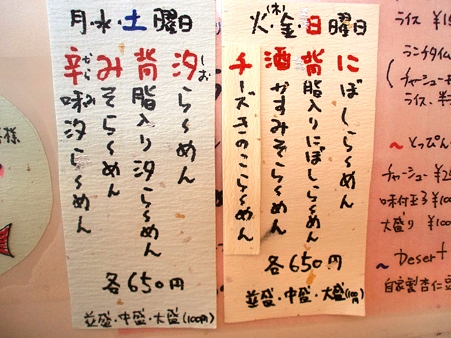 ライス ¥15
ランチタイム
(チャーシュー
ライス、半
～とっぴん
チャーシュー ¥2
味付玉子 ¥100
大盛り ¥100
～Desert
自家製杏仁豆
(木)
火・金・日曜日
にぼしらーめん
背脂入りにぼしらーめん
酒かすみそらーめん
チーズきのこらーめん
各650円
並盛・中盛・大盛(100円)
月・水・土曜日
汐らーめん
しお
背脂入り汐らーめん
みそらーめん
辛味汐らーめん
から み
各650円
並盛・中盛・大盛(100円)
様